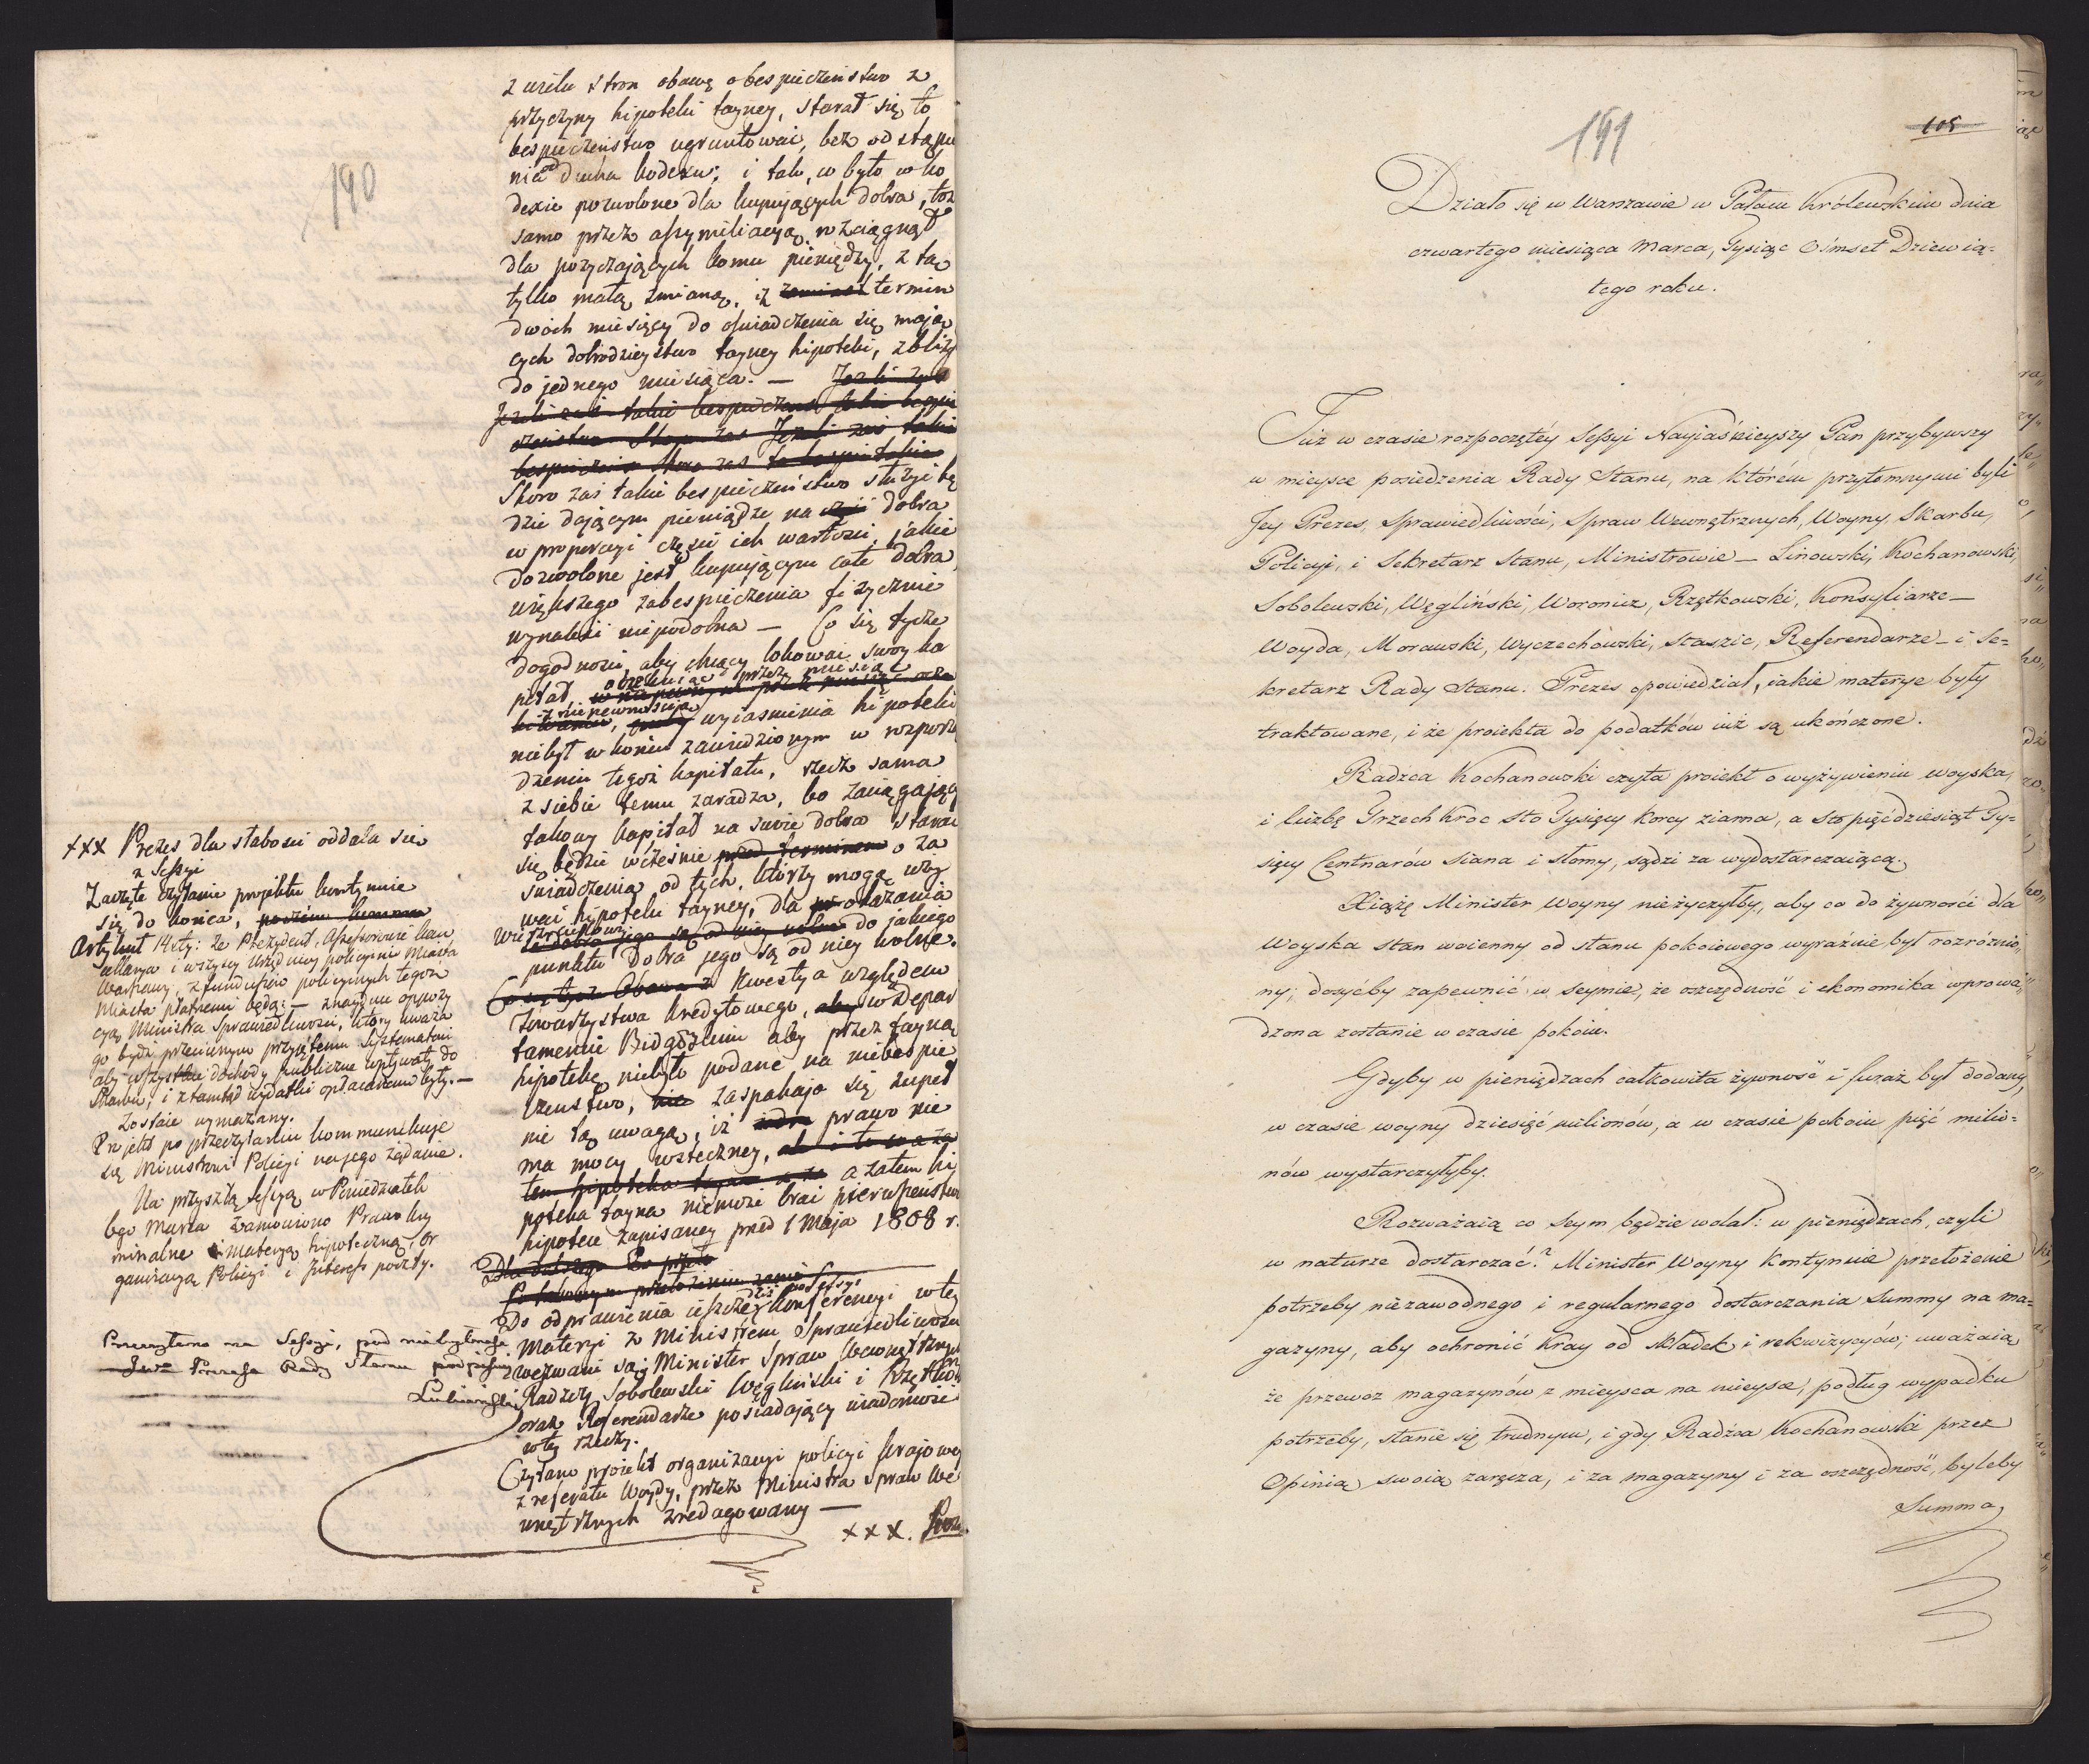 190
z wielu stron obawę o bespieczeństwo z
przyczyny hipoteki tayney, starał się to
bespieczeństwo ugruntować, bez odstąpie
nia od ducha kodexu; i tak, co było w ko
dexie pozwolone dla kupujących dobra, toż
samo przez assymiliacyą rozciągnął
dla pożyczających komu pieniędzy, z tą
tylko małą zmianą, iż termin
dwóch miesięcy do oświadczenia się mają
cych dobrodzieystwo tayney hipoteki, zbliży
do jednego miesiąca. — Jeżeli zaś
Jeżeli zaś takie bespieczeńs
czeństwo Skoro zaś Jeżeli zaś takie
bespieczeńs Skoro zaś
Skoro zaś takie bespieczeństwo służyć bę
dzie dającym pieniądze na dobra
w proporcyi części ich wartości, jakie
dozwolone jest kupującym całe dobra,
większego zabespieczenia fizycznie
wynaleść niepodobna — Co się tycze
dogodności, aby chcący lokować swóy ka
pitał, oczekując przez miesiąc
z niepewnością wyiaśnienia hipoteki
niebył w końcu zawiedzionym w rozporzą
dzeniu tegoż kapitału, rzecz sama
z siebie temu zaradza, bo zaciągający
takowy kapitał na swoie dobra starać
się będzie wcześnie przed terminem o za
świadczenia od tych, którzy mogą uży
wać hypoteki tayney, dla okazania
wierzycielowi do jakiego
punktu dobra jego są od niey wolne.
Kwestya względem
Towarzystwa kredytowego, aby w depar
tamencie Bidgoskim aby przez tayną
hipotekę niebyło podane na niebespie
czeństwo, zaspakaja się zupeł
nie tą uwagą, iż prawo nie
ma mocy wsteczney,
a zatem hi
poteka tayna niemoże brać pierwszeństwa
hipotece zapisaney przed 1 Maja 1808 r.
Do odprawienia ieszcze dziś po Sessyi konferencyi w tey
Materyi z Ministrem Sprawiedliwości
wezwani są, Minister Spraw Wewnętrznych
Radzcy Sobolewski Węgliński i Rzętkow
oraz Referendarze posiadający wiadomości
w tey rzeczy.
Czytano projekt organizacyi policyi krajowey
z referatu Woydy, przez Ministra Spraw We
wnętrznych zredagowany —
xxx.
xxx Prezes dla słabości oddala się
z Sessyi
Zaczęte czytanie projektu kontynuie
się do końca,
Artykuł 14sty: że Prezydent, Assessorowie kan
cellarya i wszyscy urzędnicy policyini Miasta
Warszawy, z funduszów policyinych tegoż
Miasta płatnemi będą; — znayduie oppozy
cyą Ministra Sprawiedliwości, który uważa
go bydź przeciwnym przyjętemu Systematowi
aby wszystkie dochody publiczne wpływały do
Skarbu, i ztamtąd wydatki opłacanemi były. —
Zostaie wymazany.
Projekt po przeczytaniu kommunikuje
się Ministrowi Policyi na jego żądanie.
Na przyszłą Sessyą w Poniedziałek
6go Marca zamówiono Prawo kry
minalne i materyą hipoteczną, or
ganizacyą Policyi i Interess poczty.
Przeczytano na Sessyi, pod niebytność
Jwo Prezesa Rady Stanu podpisuję
Łubieński
191
105
Działo się w Warszawie w Pałacu Królewskim dnia
czwartego miesiąca Marca, Tysiąc Ośmset Dziewią-
tego roku.
Już w czasie rozpoczętéy Sessyi Nayiaśnieyszy Pan przybywszy
w mieysce posiedzenia Rady Stanu, na którém przytomnymi byli
Jey Prezes, Sprawiedliwości, Spraw Wewnętrznych, Woyny, Skarbu,
Policyi, i Sekretarz Stanu, Ministrowie — Linowski, Kochanowski,
Sobolewski, Węgliński, Woronicz, Rzętkowski, Konsyliarze —
Woyda, Morawski, Wyczechowski, Staszic, Referendarze — i Se-
kretarz Rady Stanu. Prezes opowiedział, iakie materye były
traktowane, i że proiekta do podatków iuż są ukończone.
Radzca Kochanowski czyta proiekt o wyżywieniu woyska,
i liczbę Trzech Kroć sto Tysięcy korcy ziarna, a sto pięćdziesiąt Ty-
sięcy Centnarów siana i słomy, sądzi za wydostarczaiącą.
Xiążę Minister Woyny nieżyczyłby, aby co do żywności dla
Woyska stan woienny od stanu pokoiowego wyraźnie był rozróżnio-
ny; dosyćby zapewnić w Seymie, że oszczędność i ekonomika wprowa-
dzona zostanie w czasie pokoiu.
Gdyby w pieniądzach całkowita żywność i furaż był dodany,
w czasie woyny dziesięć milionów, a w czasie pokoiu pięć milio-
nów wystarczyłyby.
Rozważaią co Seym będzie wolał: w pieniądzach, czyli
w naturze dostarczać? Minister Woyny kontynuie przełożenie
potrzeby niezawodnego i regularnego dostarczania Summy na ma-
gazyny, aby ochronić Kray od składek i rekwizycyów; uważaią
że przewoz magazynów z mieysca na mieysce, podług wypadku
potrzeby, stanie się trudnym, i gdy Radzca Kochanowski przez
Opinią swoią zaręcza, i za magazyny i za oszczędność, byleby
Summa